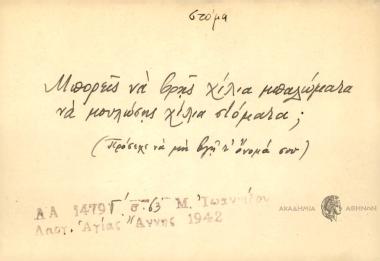 στόμα
Μπορεῖς νὰ βρῇς χίλια μπαλώματα
νὰ μουλώσῃς χίλια στόματα;
(Πρόσεχε νὰ μὴ βγῇ τ' ὄνομά σου)
ΛΑ 1479 Γ', σ. 63 Μ. Ἰωαννίδου
Λαογ. Ἁγίας Ἄννης 1942
ΑΚΑΔΗΜΙΑ ΑΘΗΝΩΝ